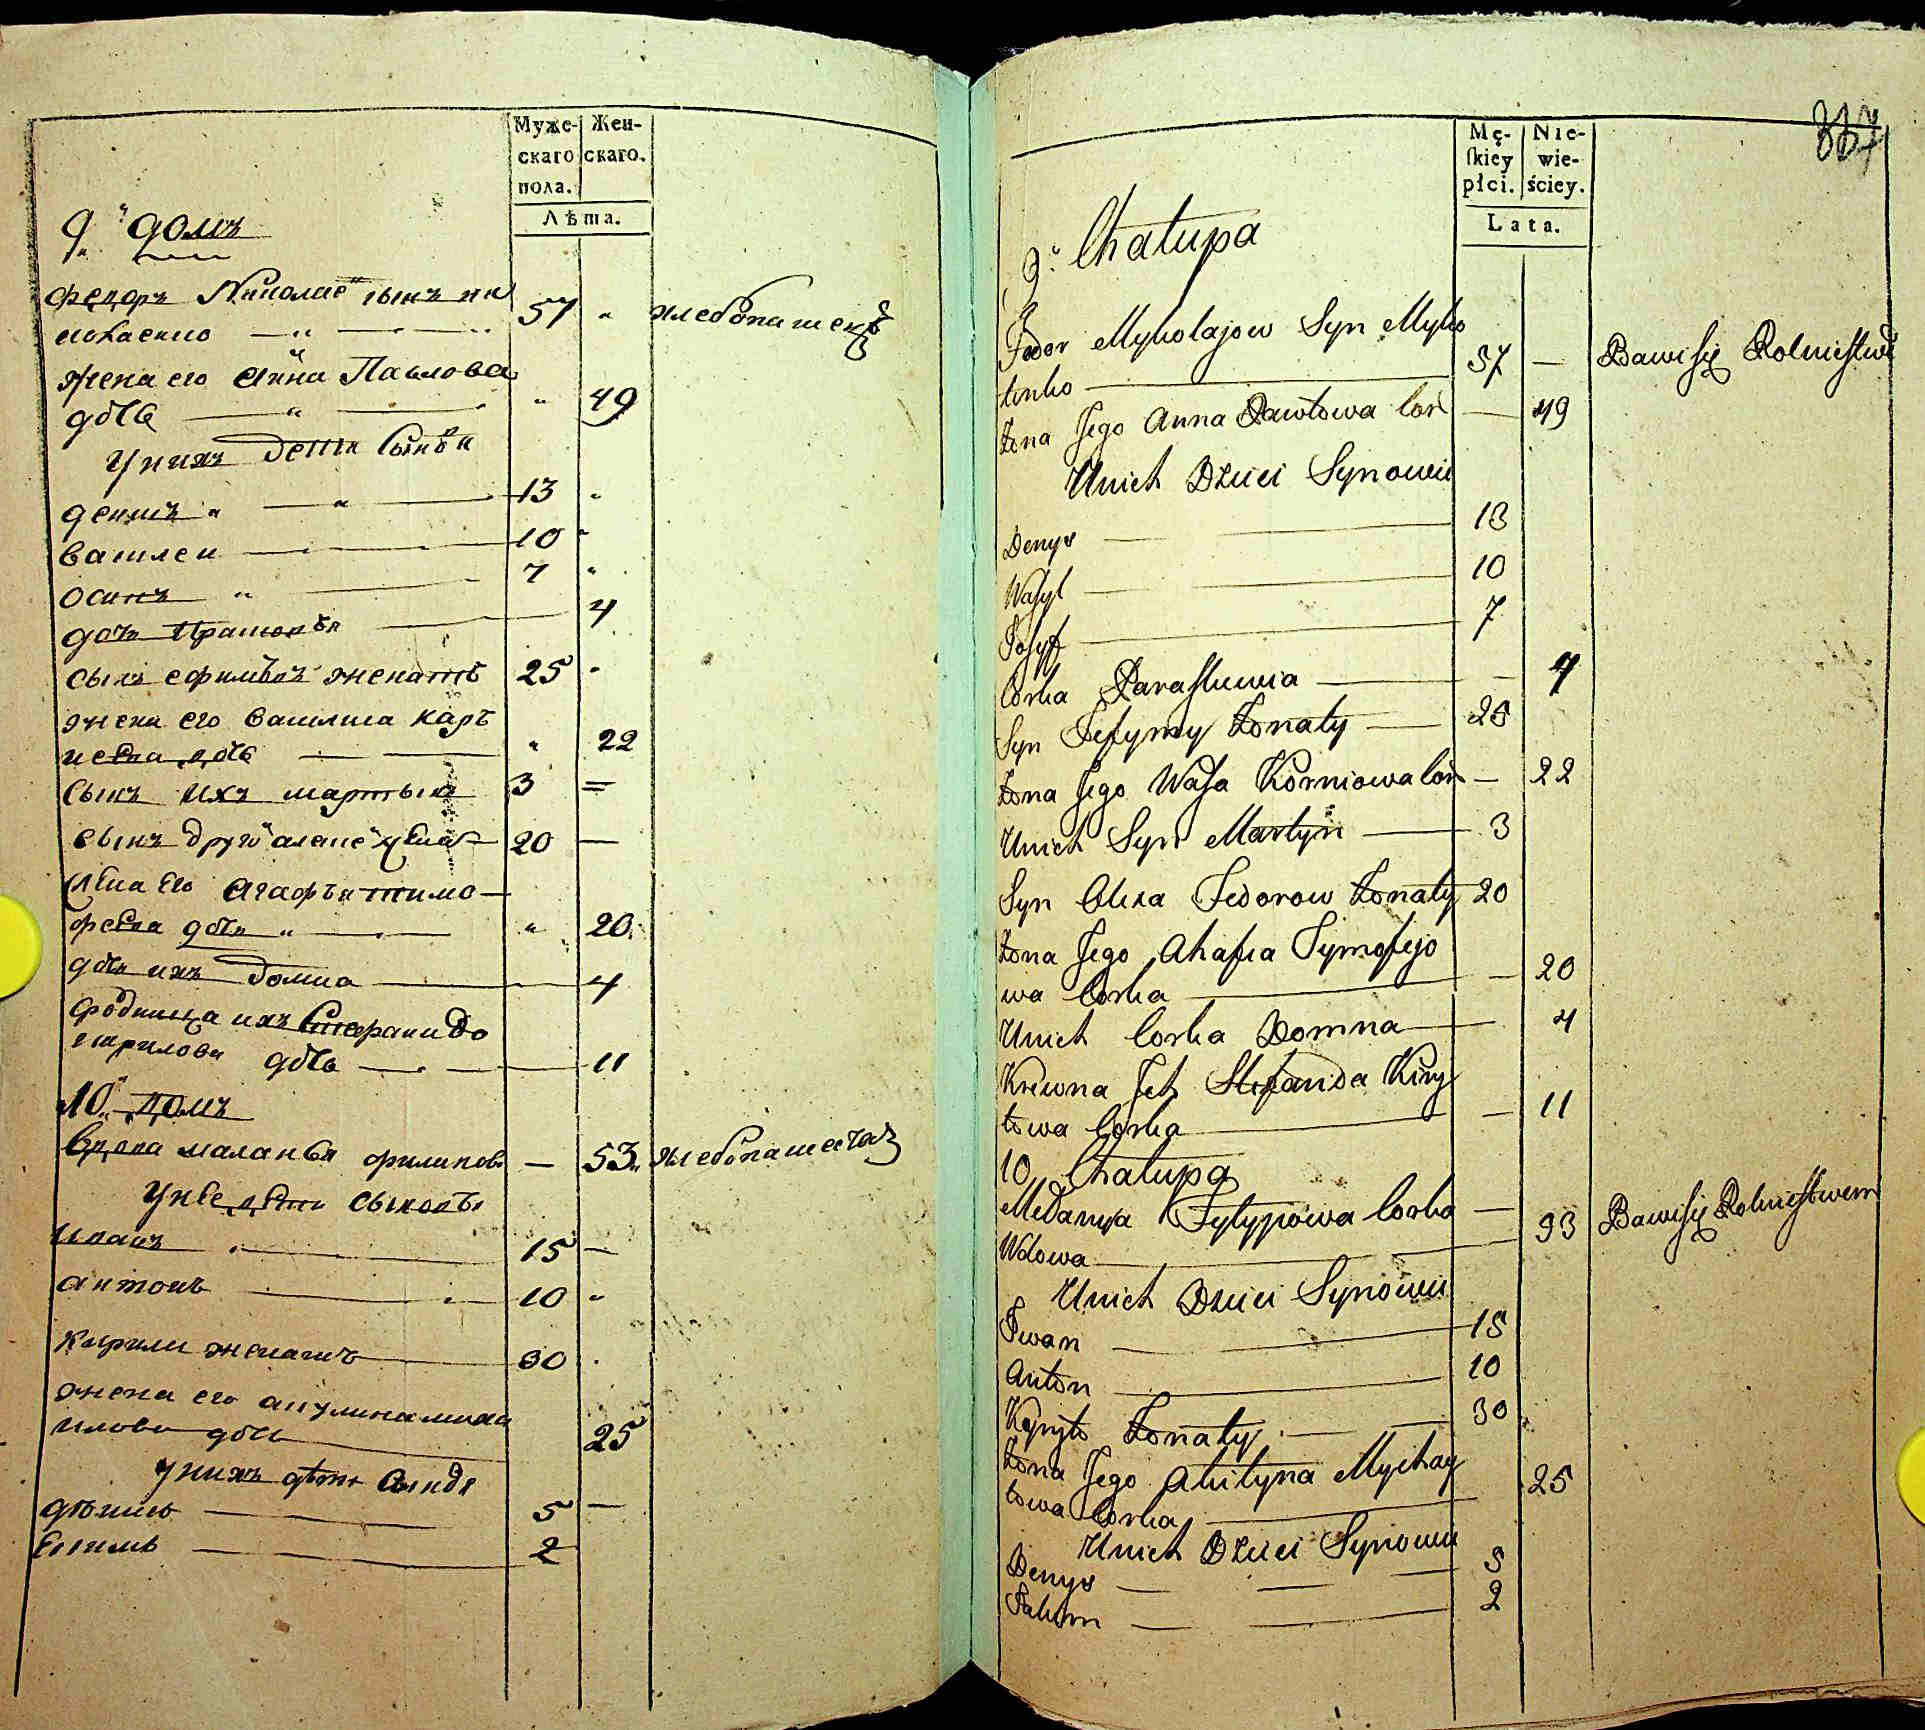 Муже-
скаго
пола.
Жен-
скаго.
Лѣта.
9й домъ
Федоръ Николаевъ сынъ ми
57 " хлебопашен
жена его Анна Павлова
дочь " 49
У нихъ дети сыновя
денисъ 13 "
василеи 10 "
осипъ 7 "
дочь 4
сынъ ефимъ женатъ 25 "
жена его василиса кар
неева дочь " 22
сынъ ихъ мартынъ 3 =
сынъ другй 20 —
жена его агафья тимо
феева дочь " 20
дочь ихъ домна 4
ихъ Стефанидо
кирилова дочь 11
10й домъ
вдова маланья филипов — 53 хлебопашества
У нее дети сыновья
иванъ 15 —
антонъ 10 "
кирили женатъ 30
жена его акулина миха
илова дочь 25
у нихъ дети сыновя
денисъ 5 —
2
337
Mę-
ſkiey
płci.
Nie-
wie-
ściey.
Lata.
9. Chałupa
Fedor Mykołajow Syn Myko
tenko 57 — Bawi się Rolnictwe
Żona Jego Anna Pawłowa Cor — 49
Unich Dzieci Synowie
Denys 13
Wasyl 10
Josyf 7
Corka Paraskiewia — 4
Syn Jefymy Żonaty 25
Żona Jego Wasa Korniowa Cor — 22
Unich Syn Martyn 3
Syn Olexa Fedorow Żonaty 20
Żona Jego Ahafia Tymofejo
wa Corka — 20
Unich Corka Domna 4
Krewna Jch Stefanida Kiry
łowa Corka — 11
10 Chałupa
Mełanya Fyłypowa Corka —
Wdowa 53 Bawi się Rolnictwem
Unich Dzieci Synowie
Iwan 15
Anton 10
Kyryło Żonaty 30
Żona Jego Akilyna Mychay
łowa Corka 25
Unich Dzieci Synowie
Denys 5
Jakim 2